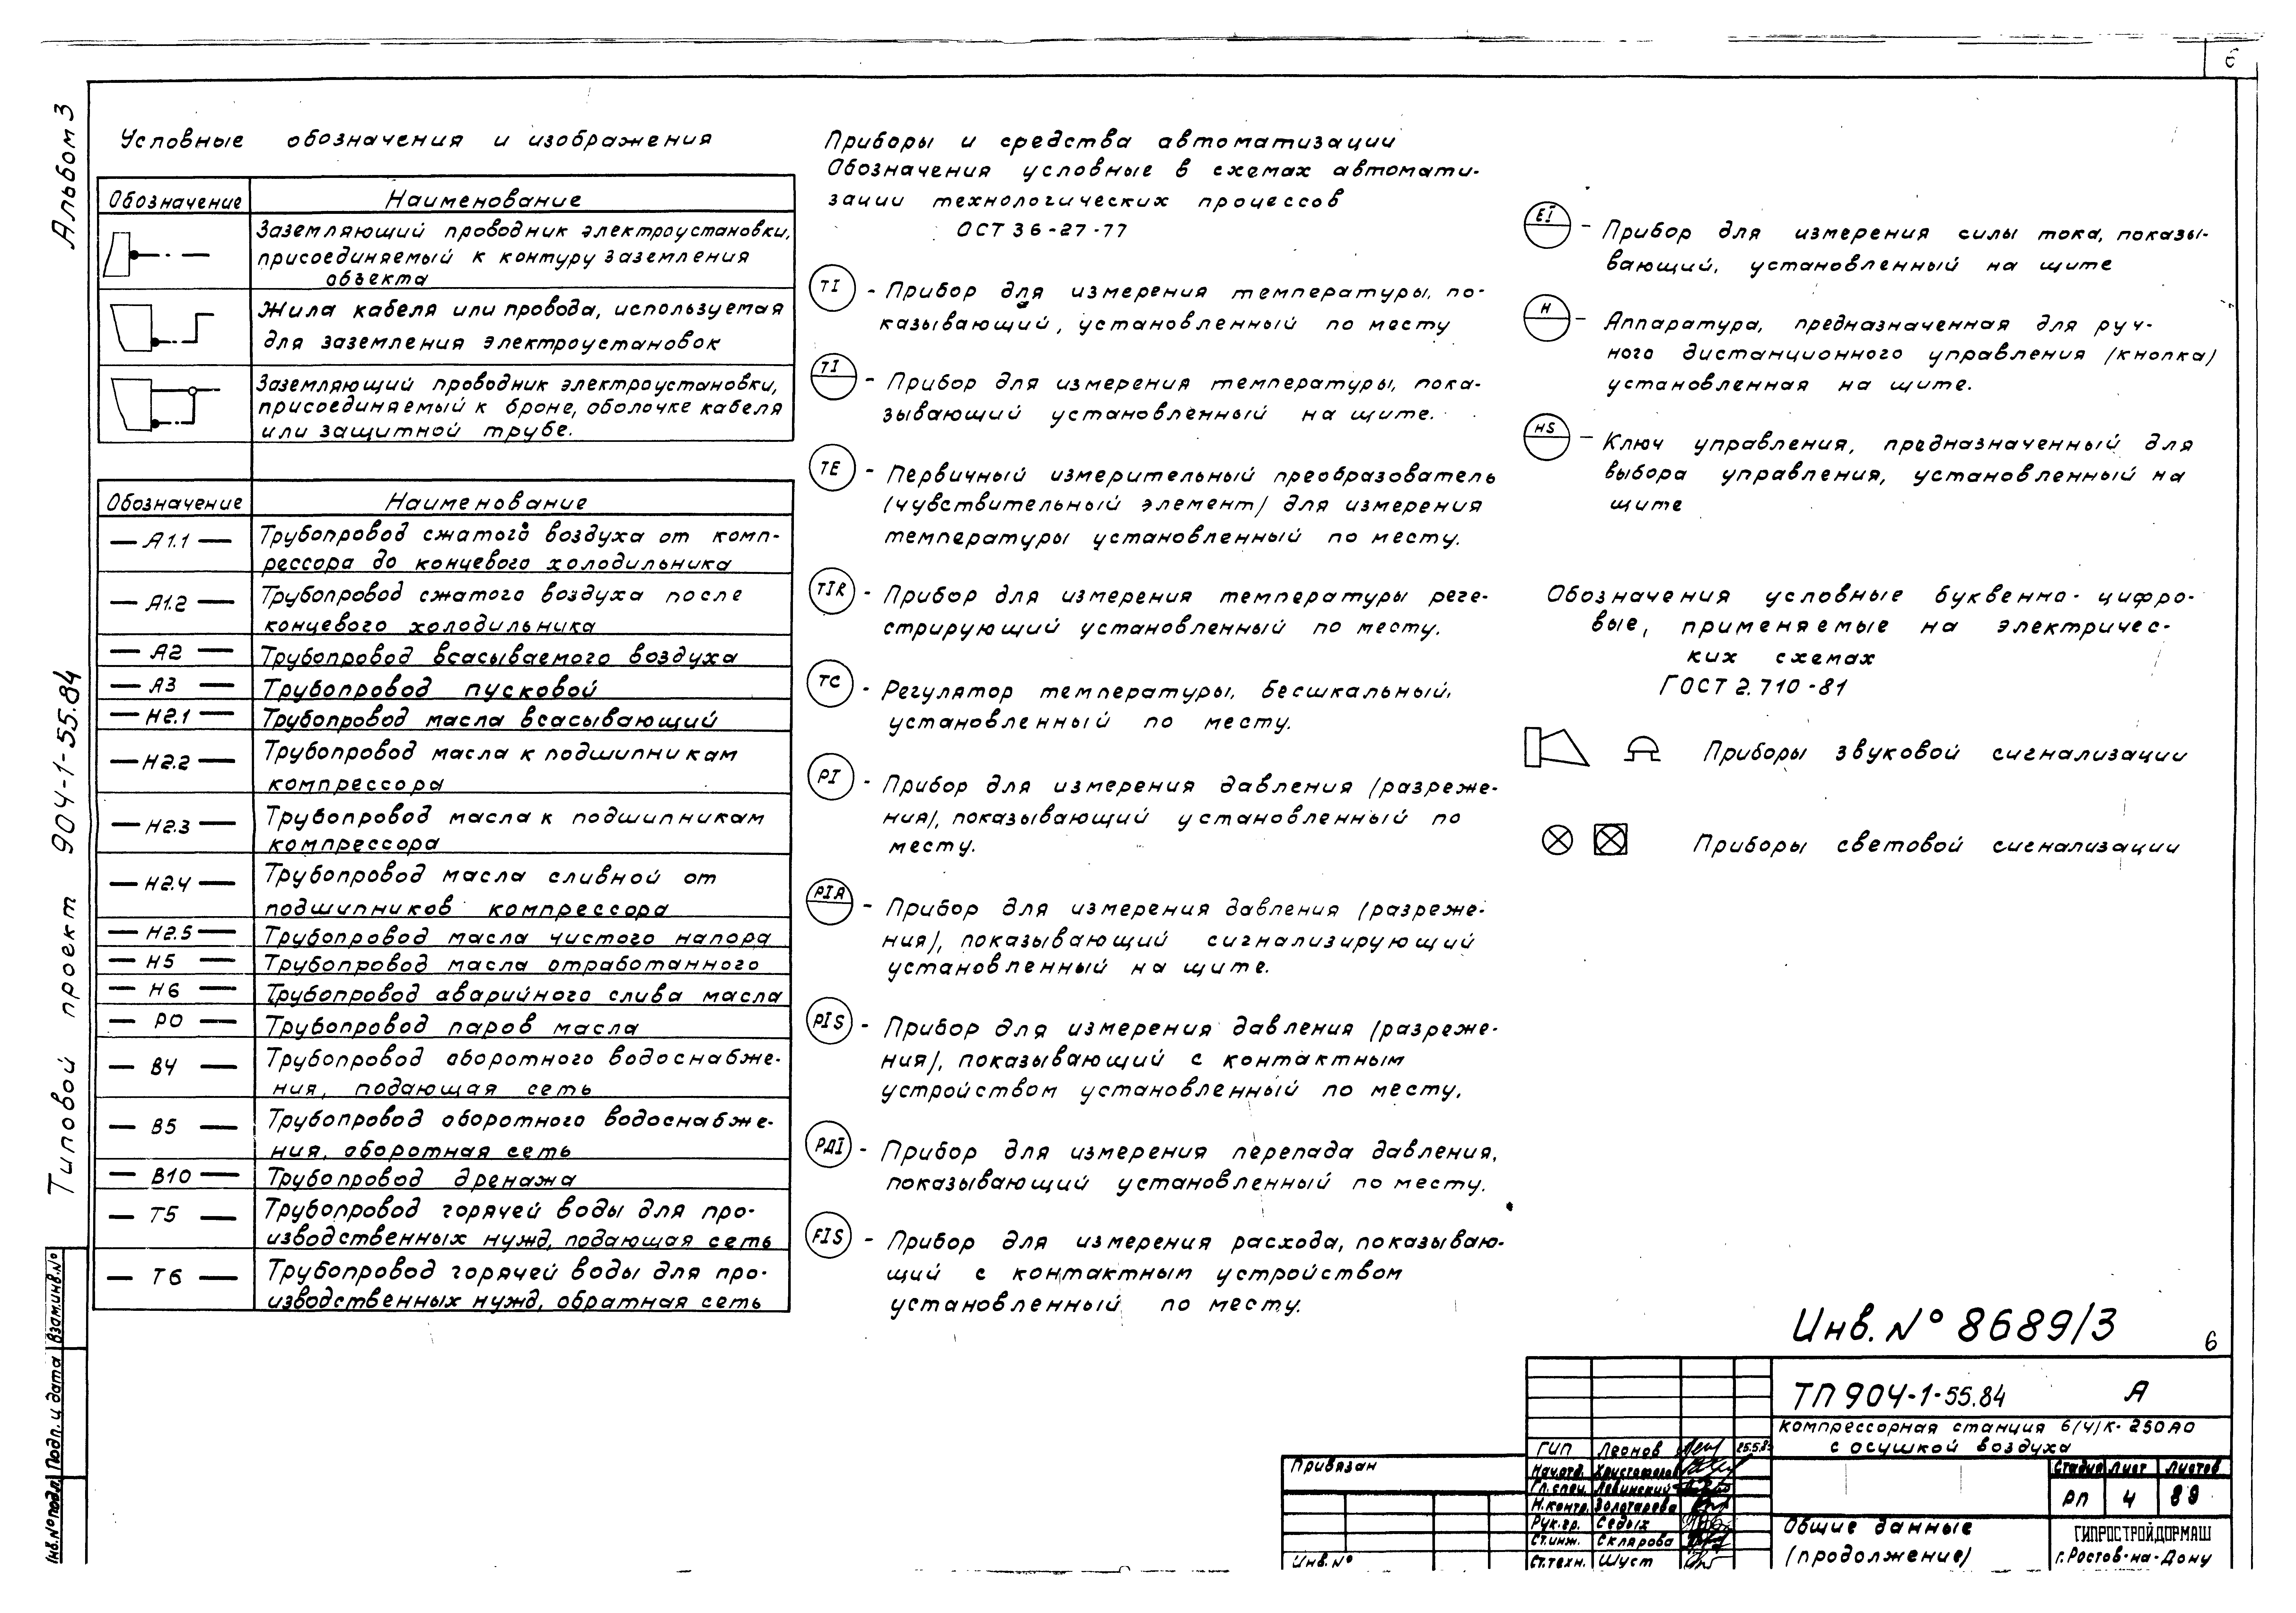 6
Альбом 3
Типовой проект 904-1-55.84
Условные обозначения и изображения
Обозначение
Наименование
Заземляющий проводник электроустановки,
присоединяемый к контуру заземления
объекта
Жила кабеля или провода, используемая
для заземления электроустановок
Заземляющий проводник электроустановки,
присоединяемый к броне, оболочке кабеля
или защитной трубе.
Обозначение
Наименование
А1.1
Трубопровод сжатого воздуха от комп-
рессора до концевого холодильника
А1.2
Трубопровод сжатого воздуха после
концевого холодильника
А2
Трубопровод всасываемого воздуха
А3
Трубопровод пусковой
Н2.1
Трубопровод масла всасывающий
Н2.2
Трубопровод масла к подшипникам
компрессора
Н2.3
Трубопровод масла к подшипникам
компрессора
Н2.4
Трубопровод масла сливной от
подшипников компрессора
Н2.5
Трубопровод масла чистого напора
Н5
Трубопровод масла отработанного
Н6
Трубопровод аварийного слива масла
Р0
Трубопровод паров масла
В4
Трубопровод оборотного водоснабже-
ния, подающая сеть
В5
Трубопровод оборотного водоснабже-
ния, оборотная сеть
В10
Трубопровод дренажа
Т5
Трубопровод горячей воды для про-
изводственных нужд, подающая сеть
Т6
Трубопровод горячей воды для про-
изводственных нужд, обратная сеть
Приборы и средства автоматизации
Обозначения условные в схемах автомати-
зации технологических процессов
ОСТ 36-27-77
TI - Прибор для измерения температуры, по-
казывающий, установленный по месту
TI - Прибор для измерения температуры, пока-
зывающий установленный на щите.
TE - Первичный измерительный преобразователь
(чувствительный элемент) для измерения
температуры установленный по месту.
TIR - Прибор для измерения температуры реге-
стрирующий установленный по месту.
TC - Регулятор температуры, бесшкальный,
установленный по месту.
PI - Прибор для измерения давления (разреже-
ния), показывающий установленный по
месту.
PIA - Прибор для измерения давления (разреже-
ния), показывающий сигнализирующий
установленный на щите.
PIS - Прибор для измерения давления (разреже-
ния), показывающий с контактным
устройством установленный по месту.
РДI - Прибор для измерения перепада давления,
показывающий установленный по месту.
FIS - Прибор для измерения расхода, показываю-
щий с контактным устройством
установленный по месту.
EI - Прибор для измерения силы тока, показы-
вающий, установленный на щите
H - Аппаратура, предназначенная для руч-
ного дистанционного управления (кнопка)
установленная на щите.
HS - Ключ управления, предназначенный для
выбора управления, установленный на
щите
Обозначения условные буквенно-цифро-
вые, применяемые на электричес-
ких схемах
ГОСТ 2.710-81
Приборы звуковой сигнализации
Приборы световой сигнализации
Инв. № 8689/3
6
ТП 904-1-55.84 А
компрессорная станция 6(4)К-250АО
с осушкой воздуха
Стадия Лист Листов
РП 4 89
Общие данные
(продолжение)
ГИПРОСТРОЙДОРМАШ
г. Ростов-на-Дону
ГИП Леонов
Нач.отд.
Гл.спец. Левинский
Н.контр. Золотарева
Рук.гр. Седых
Ст.инж. Склярова
Ст.техн. Шуст
Привязан
Инв. №
Инв.№ подл. Подп. и дата Взам.инв.№